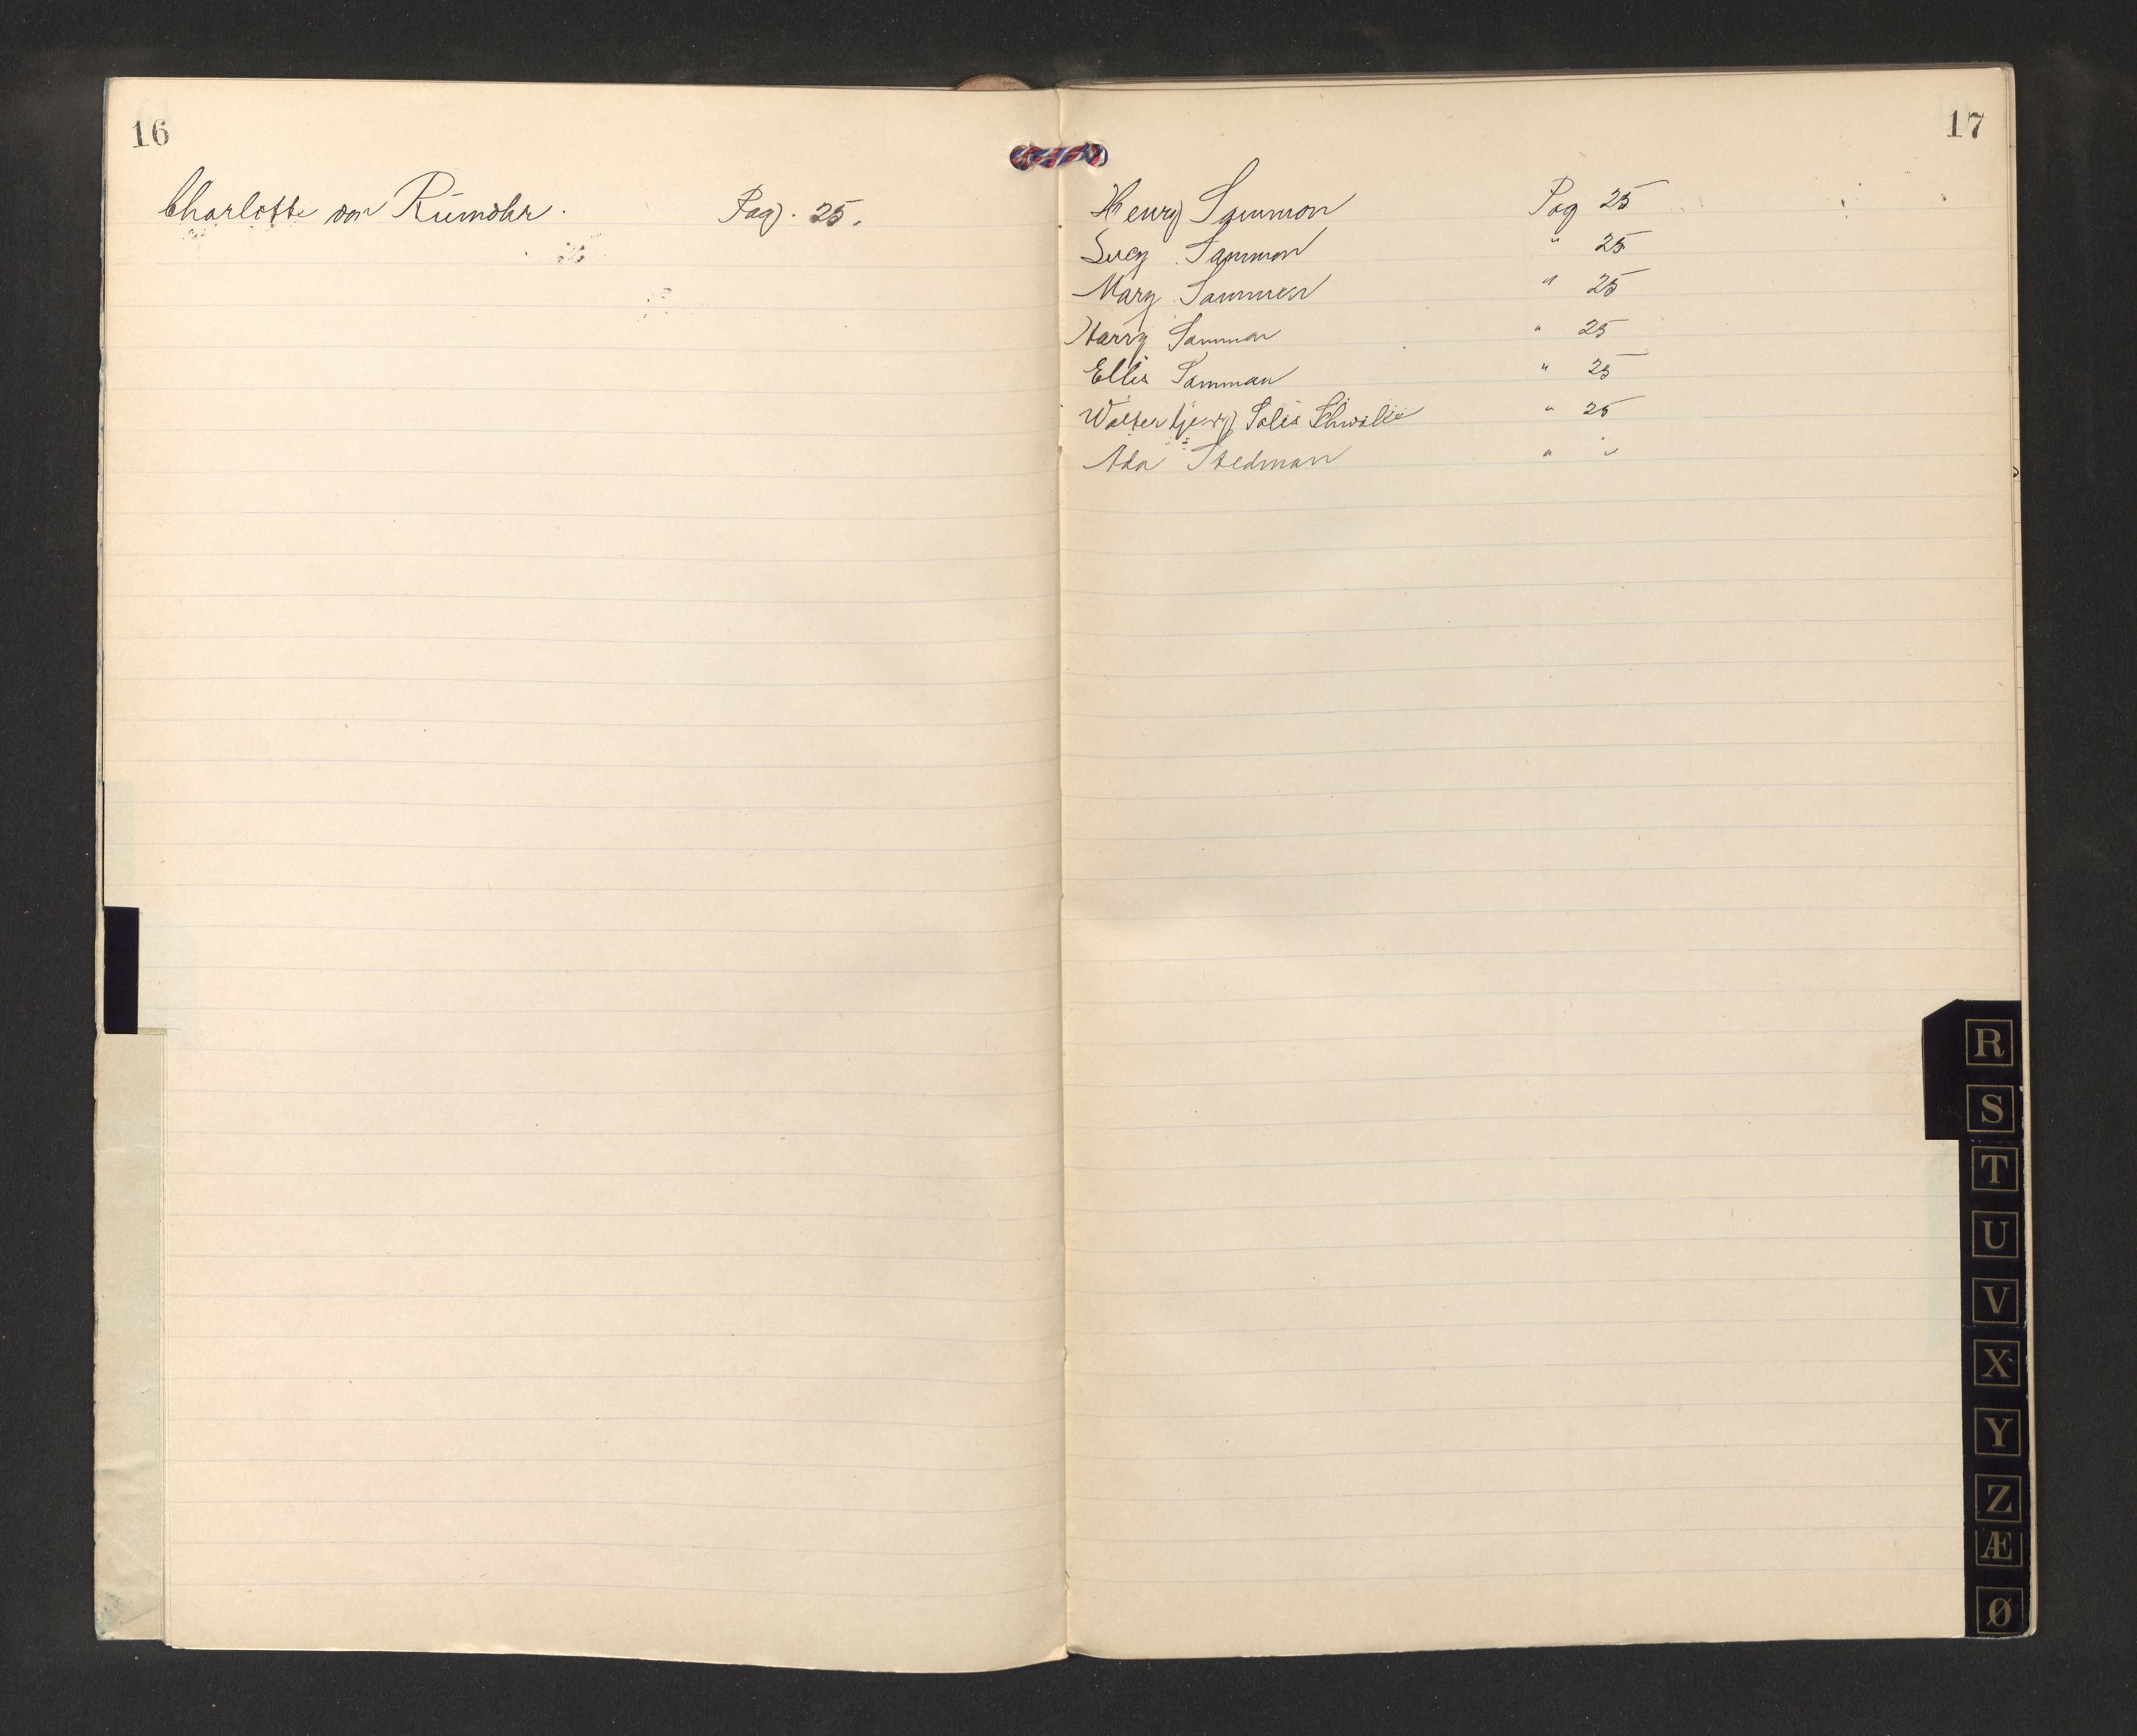 16
Charlotte von Rumohr. Pag. 25.
17
Henry Sammon Pag 25
Lucy Sammon " 25
Mary Sammon " 25
Harry Sammon " 25
Ellis Samman " 25
Walter Solis Schwalie " 25
Ada Stedman " "
R
S
T
U
V
X
Y
Z
Æ
Ø